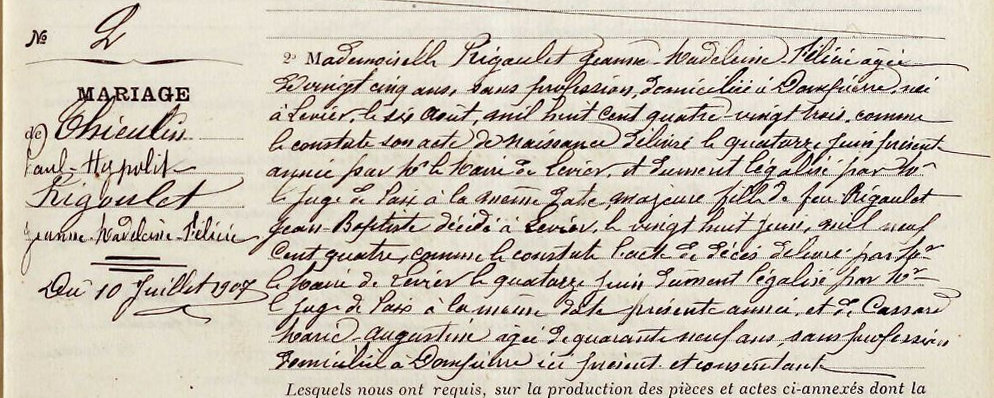 № 2
MARIAGE
de Thieulin
Paul-Hypolite
Rigoulet
Jeanne Madeleine Félicie
Du 10 Juillet 1907
2° Mademoiselle Rigoulet Jeanne Madeleine Félicie agée
de vingt cinq ans, sans profession, domiciliée à Dompierre, née
à Levier, le six Août, mil huit cent quatre-vingt trois, comme
le constate son acte de naissance délivré le quatorze juin présent
année par Mr le Maire de Levier, et dument légalisé par Mr
le juge de Paix à la même date, majeure fille de feu Rigoulet
Jean-Baptiste décédé à Levier, le vingt huit Juin, mil neuf
cent quatre, comme le constate l'acte de décès délivré par Mr
le Maire de Levier le quatorze juin dument légalisé par Mr
le juge de Paix à la même date présente année, et de
Marie Augustine agée de quarante neuf ans, sans profession
domiciliée à Dompierre ici présent et consentante
Lesquels nous ont requis, sur la production des pièces et actes ci-annexés dont la